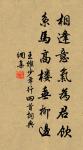 相逢意氣為君飲
系馬高樓垂柳邊
王維少年行四首詞典
網集